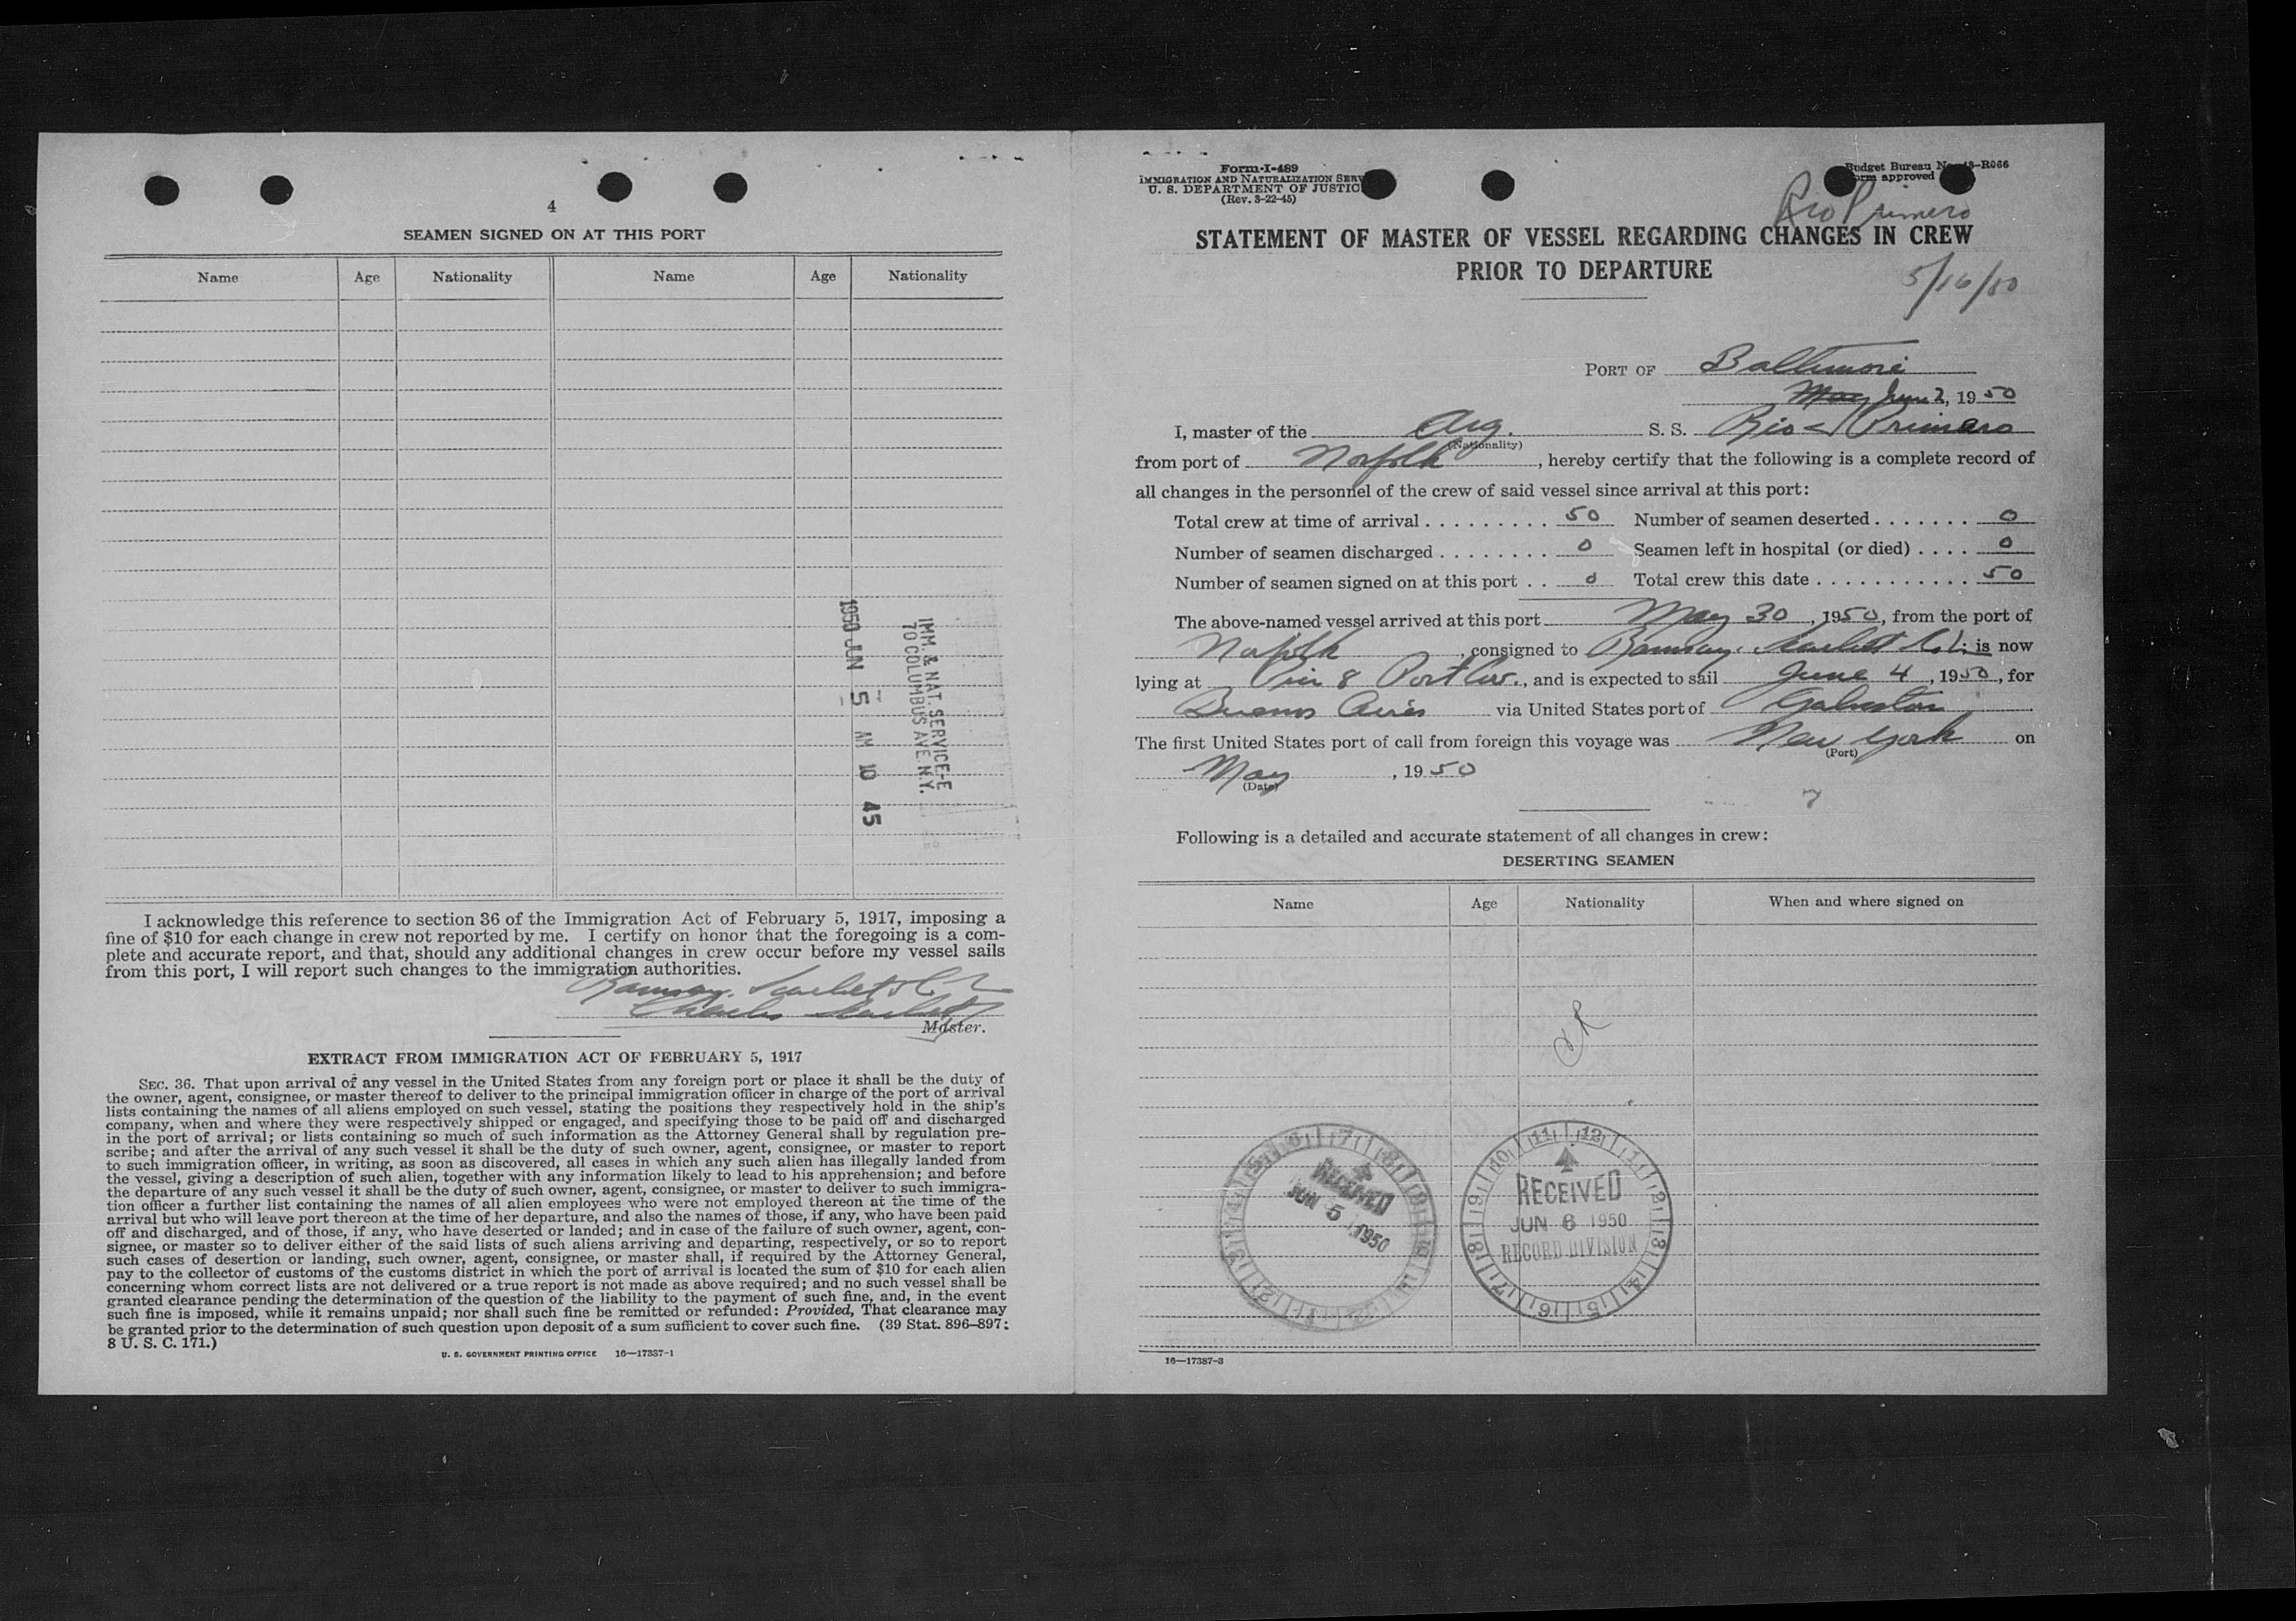 4
SEAMEN SIGNED ON AT THIS PORT
Name Age Nationality Name Age Nationality
IMM. & NAT. SERVICE-E
70 COLUMBUS AVE. N.Y.
1950 JUN 5 AM 10 45
I acknowledge this reference to section 36 of the Immigration Act of February 5, 1917, imposing a
fine of $10 for each change in crew not reported by me. I certify on honor that the foregoing is a com-
plete and accurate report, and that, should any additional changes in crew occur before my vessel sails
from this port, I will report such changes to the immigration authorities.
Ramsay, Scarlett & Co
Charles Scarlett
Master.
EXTRACT FROM IMMIGRATION ACT OF FEBRUARY 5, 1917
SEC. 36. That upon arrival of any vessel in the United States from any foreign port or place it shall be the duty of
the owner, agent, consignee, or master thereof to deliver to the principal immigration officer in charge of the port of arrival
lists containing the names of all aliens employed on such vessel, stating the positions they respectively hold in the ship's
company, when and where they were respectively shipped or engaged, and specifying those to be paid off and discharged
in the port of arrival; or lists containing so much of such information as the Attorney General shall by regulation pre-
scribe; and after the arrival of any such vessel it shall be the duty of such owner, agent, consignee, or master to report
to such immigration officer, in writing, as soon as discovered, all cases in which any such alien has illegally landed from
the vessel, giving a description of such alien, together with any information likely to lead to his apprehension; and before
the departure of any such vessel it shall be the duty of such owner, agent, consignee, or master to deliver to such immigra-
tion officer a further list containing the names of all alien employees who were not employed thereon at the time of the
arrival but who will leave port thereon at the time of her departure, and also the names of those, if any, who have been paid
off and discharged, and of those, if any, who have deserted or landed; and in case of the failure of such owner, agent, con-
signee, or master so to deliver either of the said lists of such aliens arriving and departing, respectively, or so to report
such cases of desertion or landing, such owner, agent, consignee, or master shall, if required by the Attorney General,
pay to the collector of customs of the customs district in which the port of arrival is located the sum of $10 for each alien
concerning whom correct lists are not delivered or a true report is not made as above required; and no such vessel shall be
granted clearance pending the determination of the question of the liability to the payment of such fine, and, in the event
such fine is imposed, while it remains unpaid; nor shall such fine be remitted or refunded: Provided, That clearance may
be granted prior to the determination of such question upon deposit of a sum sufficient to cover such fine. (39 Stat. 896-897;
8 U. S. C. 171.)
U. S. GOVERNMENT PRINTING OFFICE 16—17387-1
Form I-489
IMMIGRATION AND NATURALIZATION SERV
U. S. DEPARTMENT OF JUSTIC
(Rev. 3-22-45)
Budget Bureau No. 43-R066
Form approved
Rio Primero
STATEMENT OF MASTER OF VESSEL REGARDING CHANGES IN CREW
PRIOR TO DEPARTURE
5/16/50
PORT OF Baltimore
May June 2, 1950
I, master of the Arg. S. S. Rio Primero
(Nationality)
from port of Norfolk, hereby certify that the following is a complete record of
all changes in the personnel of the crew of said vessel since arrival at this port:
Total crew at time of arrival . . . . . . . . . 50 Number of seamen deserted . . . . . . . 0
Number of seamen discharged . . . . . . . . 0 Seamen left in hospital (or died) . . . . 0
Number of seamen signed on at this port . . 0 Total crew this date . . . . . . . . . . . . 50
The above-named vessel arrived at this port May 30, 1950, from the port of
Norfolk, consigned to Ramsay, Scarlett & Co; is now
lying at Pier 8 Port Cov., and is expected to sail June 4, 1950, for
Buenos Aires via United States port of Galveston
The first United States port of call from foreign this voyage was New York on
(Port)
May, 1950
(Date)
Following is a detailed and accurate statement of all changes in crew:
DESERTING SEAMEN
Name Age Nationality When and where signed on
RECEIVED
JUN 5 1950
RECEIVED
JUN 6 1950
RECORD DIVISION
16—17387-3